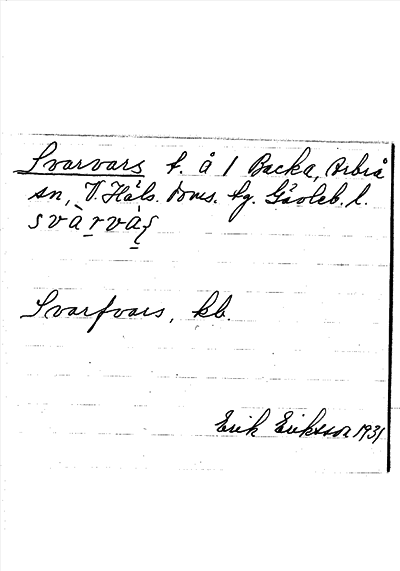 Svarvars t. å 1 Backa, Arbrå
sn, V. Häls. doms. tg. Gävleb. l.
svàrvàʂ
Svarfvars, kb.
Erik Eriksson 1931